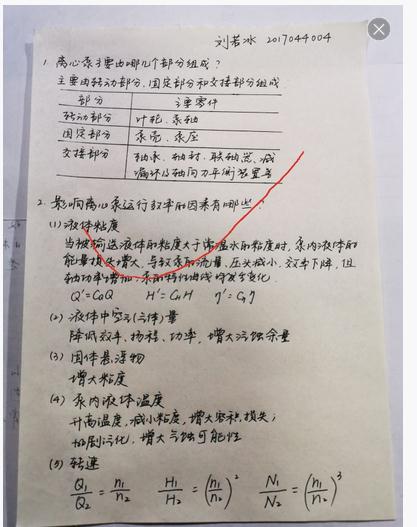 刘若冰 2017044004
1. 离心泵主要由哪几个部分组成?
主要由转动部分、固定部分和交接部分组成
部分 主要零件
转动部分 叶轮、泵轴
固定部分 泵壳、泵座
交接部分 轴承、轴封、联轴器、减
漏环及轴向力平衡装置等
2. 影响离心泵运行效率的因素有哪些?
(1) 液体粘度
当被输送液体的粘度大于常温水的粘度时, 泵内液体的
能量损失增大, 泵的流量、压头减小, 效率下降, 但
轴功率增加, 泵的特性曲线均发生变化.
Q'=CQQ H'=CHH η'=Cηη
(2) 液体中空气(气体)量
降低效率、扬程、功率, 增大汽蚀余量
(3) 固体悬浮物
增大粘度
(4) 泵内液体温度
升高温度, 减小粘度, 增大容积损失;
加剧汽化, 增大气蚀可能性
(5) 转速
Q1/Q2 = n1/n2 H1/H2 = (n1/n2)² N1/N2 = (n1/n2)³